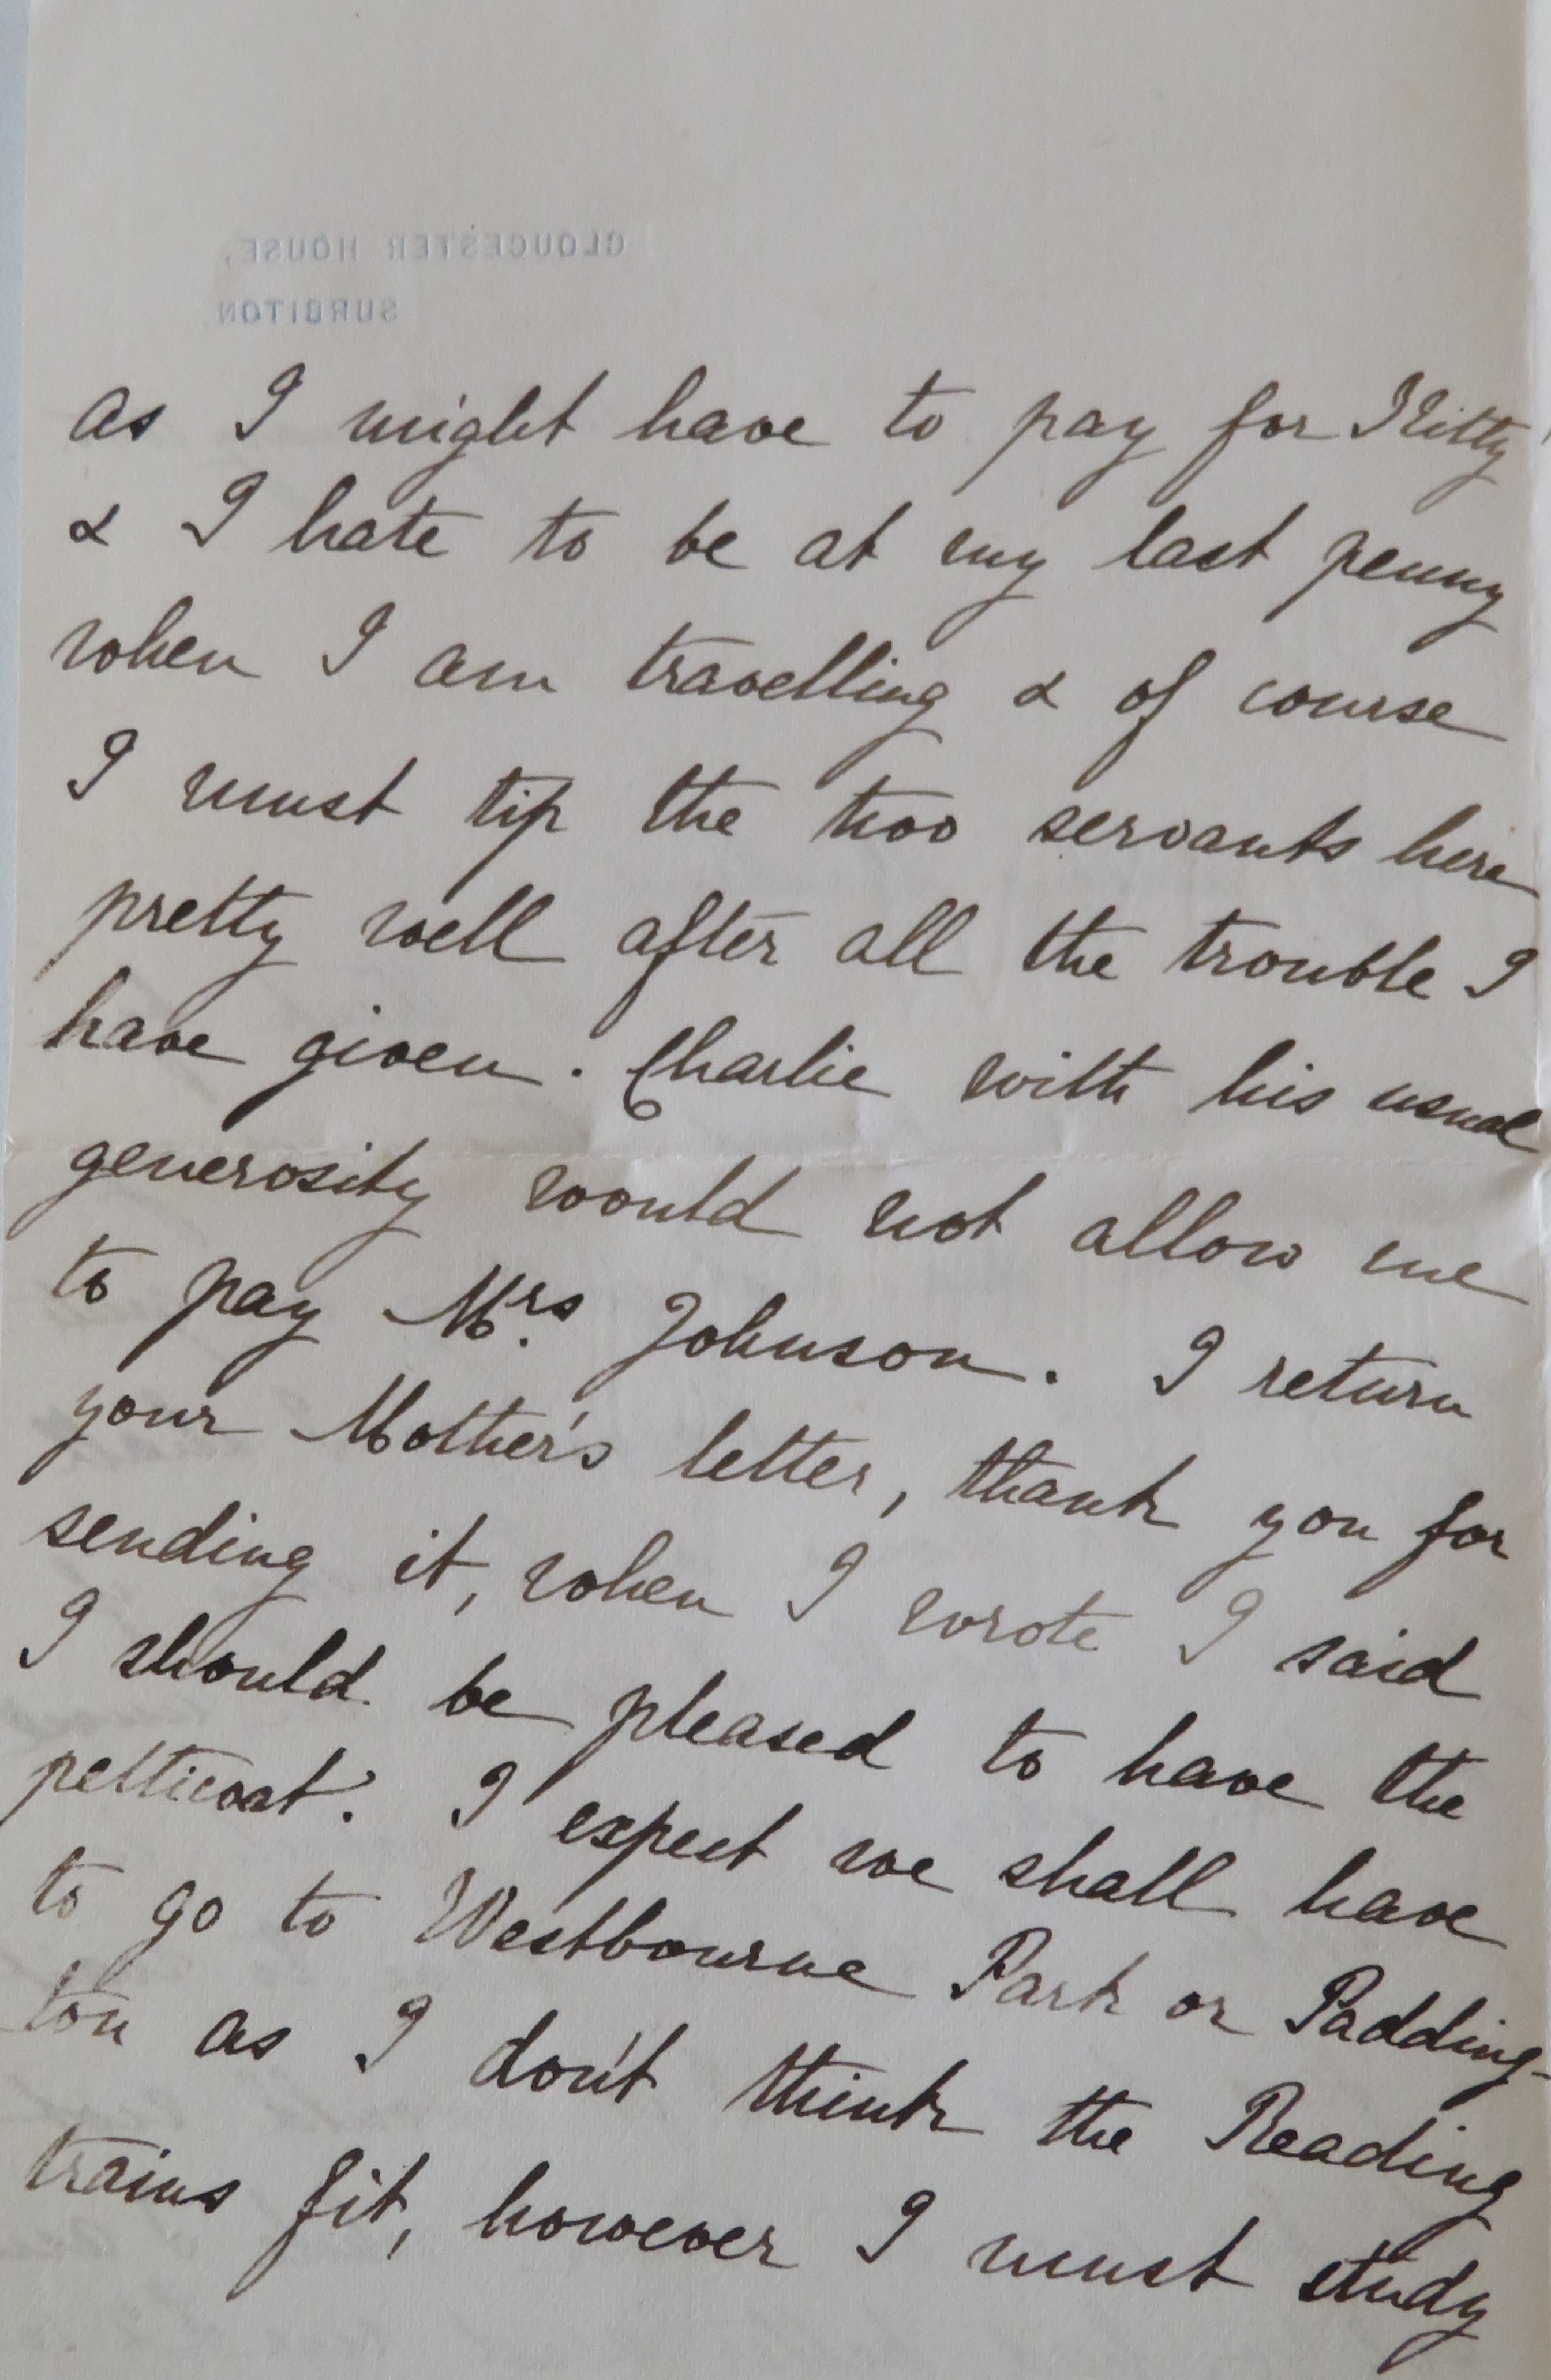 GLOUCESTER HOUSE,
SURBITON.
as I might have to pay for Kitty
& I hate to be at my last penny
when I am travelling & of course
I must tip the two servants here
pretty well after all the trouble I
have given. Charlie with his usual
generosity would not allow me
to pay Mrs. Johnson. I return
your Mother's letter, thank you for
sending it, when I wrote I said
I should be pleased to have the
petticoat. I expect we shall have
to go to Westbourne Park or Padding-
ton as I don't think the Reading
trains fit, however I must study